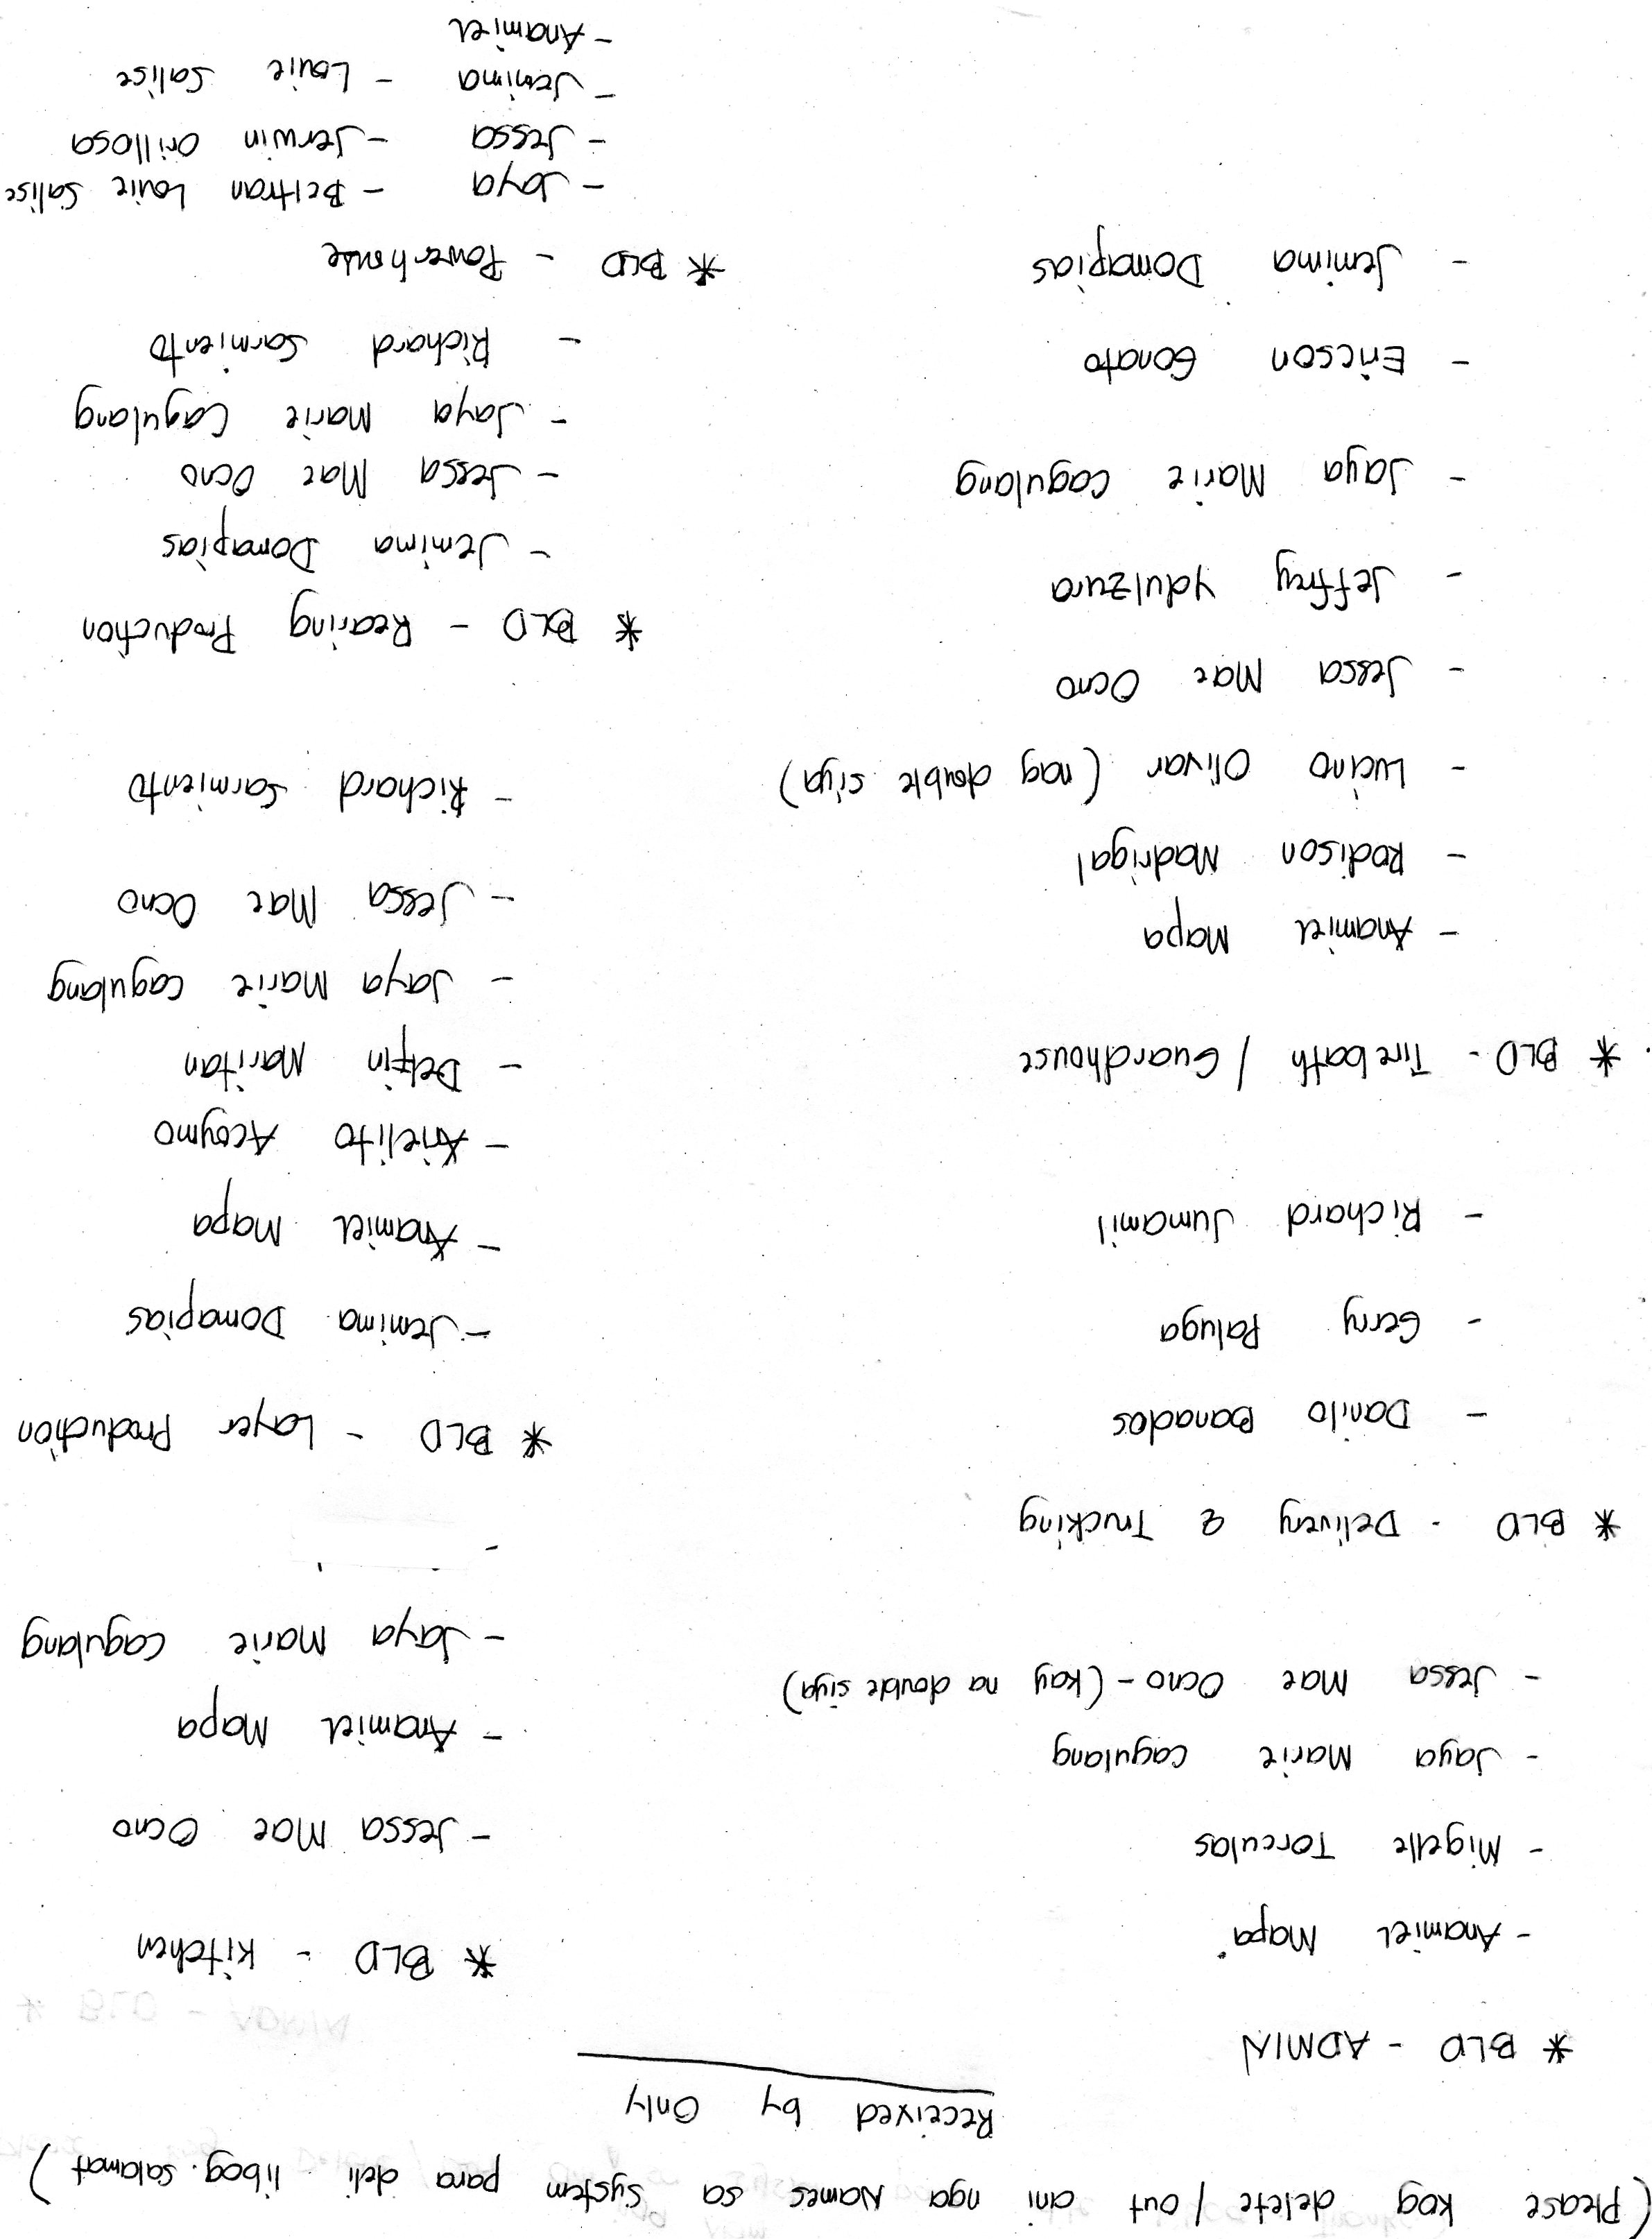 (Please kog delete / out ani nga Names sa system para deli libog. salamat)
Received by Only
* BLD - ADMIN
- Anamiel Mapa
- Migelle Torculas
- Jaya Marie Cagulang
- Jessa Mae Ocno - (kay na double siya)
* BLD - Delivery & Trucking
- Danilo Banados
- Gerry Paluga
- Richard Jumamil
* BLD - Tirebath / Guardhouse
- Anamiel Mapa
- Rodison Madrigal
- Lucino Olivar (nag double siya)
- Jessa Mae Ocno
- Jeffrey Ydulzura
- Jaya Marie Cagulang
- Ericson Gonato
- Jemima Domapias
* BLD - Kitchen
- Jessa Mae Ocno
- Anamiel Mapa
- Jaya Marie Cagulang
-
* BLD - Layer Production
- Jemima Domapias
- Anamiel Mapa
- Arielito Acoymo
- Delfin Maritan
- Jaya Marie Cagulang
- Jessa Mae Ocno
- Richard Sarmiento
* BLD - Rearing Production
- Jemima Domapias
- Jessa Mae Ocno
- Jaya Marie Cagulang
- Richard Sarmiento
* BLD - Powerhouse
- Jaya - Beltran Louie Salise
- Jessa - Jerwin Orillosa
- Jemima - Louie Salise
- Anamiel